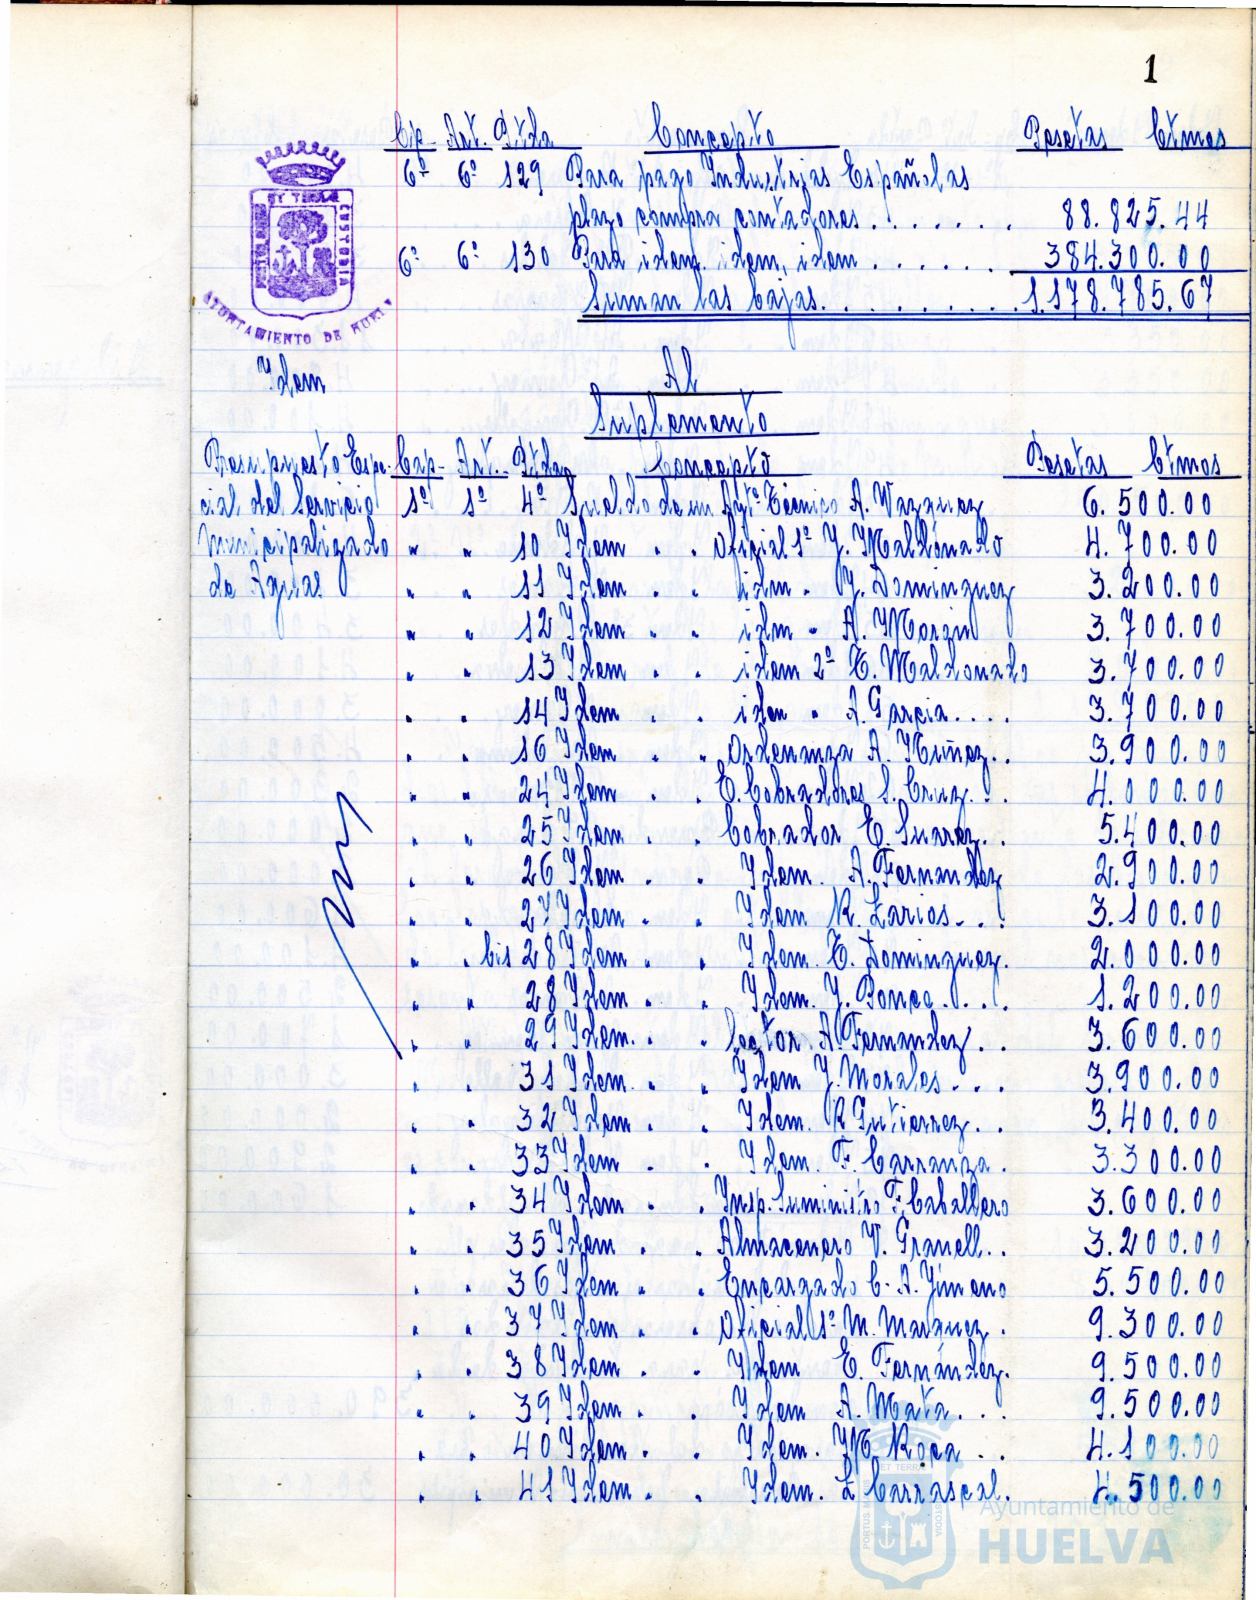 1
Cap. Art. Ptda Concepto Pesetas Ctmos
6º 6º 129 Para pago Industrias Españolas
plazo compra contadores . . . . . . . 88.825.44
6º 6º 130 Para idem. idem, idem . . . . . . 384.300.00
Suman las bajas. . . . . . . . . . 1.178.785.67
PORTUS MARIS ET TERRAE CUSTODIA
AYUNTAMIENTO DE HUELVA
Idem
Al
Suplemento
Presupuesto Espe-
cial del Servicio
Municipalizado
de Aguas
Cap- Art.- Ptda Concepto Pesetas Ctmos
1º 1º 4º Sueldo de un Aytº Técnico A. Vazquez 6.500.00
" " 10 Idem " " Oficial 1º J. Maldonado 4.700.00
" " 11 Idem " " idem " J. Dominguez 3.200.00
" " 12 Idem " " idem " A. Morzin 3.700.00
" " 13 Idem " " idem 2º E. Maldonado 3.700.00
" " 14 Idem " " idem " A. Garcia. . . . 3.700.00
" " 16 Idem " " Ordenanza A. Nuñez. . 3.900.00
" " 24 Idem " " E. Cobradores S. Cruz. . . 4.000.00
" " 25 Idem " " Cobrador E. Suarez. . 5.400.00
" " 26 Idem " " Idem. A. Fernandez 2.900.00
" " 27 Idem " " Idem R. Larios. . . 3.100.00
" " bis 28 Idem " " Idem. E. Dominguez. 2.000.00
" " 28 Idem " " Idem. J. Ponce. . . . 1.200.00
" " 29 Idem. " " Lector A. Fernandez. . 3.600.00
" " 31 Idem. " " Idem J. Morales. . . 3.900.00
" " 32 Idem. " " Idem. R Gutierrez. . 3.400.00
" " 33 Idem " " Idem. F. Carranza. 3.300.00
" " 34 Idem " " Insp. Suministro F. Caballero 3.600.00
" " 35 Idem " " Almacenero V. Granell. . 3.200.00
" " 36 Idem " " Encargado C. A. Jimeno 5.500.00
" " 37 Idem " " Oficial 1º M. Marquez. 9.300.00
" " 38 Idem " " Idem E. Fernández. 9.500.00
" " 39 Idem " " Idem A. Mata. . . 9.500.00
" " 40 Idem " " Idem. M. Roca . . 4.100.00
" " 41 Idem " " Idem. L Carrascal. 4.500.00
PORTUS MARIS ET TERRAE CUSTODIA
Ayuntamiento de
HUELVA